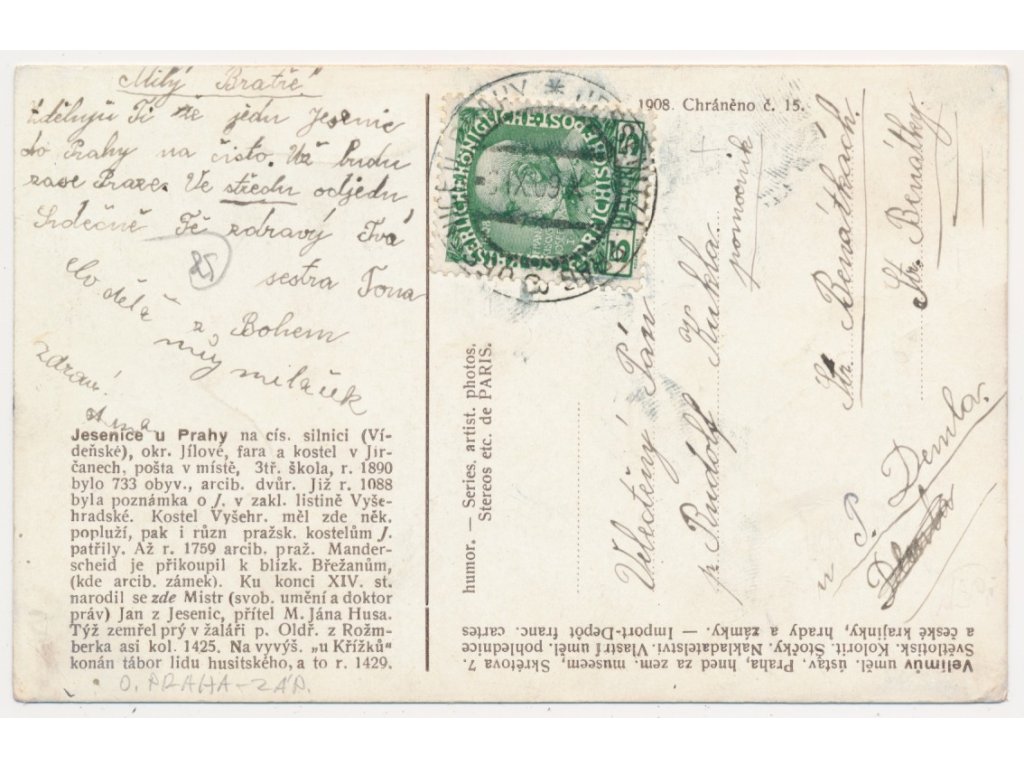 Milý Bratře
Sděluju Ti že jedu Jesenic
do Prahy na čisto. Už budu
zase Praze. Ve středu odjedu
Srdečně Tě zdravý Tvá
sestra Tona
Co dělá
můj miláček
z Bohem
zdraví
25
Jesenice u Prahy na cís. silnici (Ví-
deňské), okr. Jílové, fara a kostel v Jir-
čanech, pošta v místě, 3tř. škola, r. 1890
bylo 733 obyv., arcib. dvůr. Již r. 1088
byla poznámka o J. v zakl. listině Vyše-
hradské. Kostel Vyšehr. měl zde něk.
popluží, pak i různ pražsk. kostelům J.
patřily. Až r. 1759 arcib. praž. Mander-
scheid je přikoupil k blízk. Břežanům,
(kde arcib. zámek). Ku konci XIV. st.
narodil se zde Mistr (svob. umění a doktor
práv) Jan z Jesenic, přítel M. Jána Husa.
Týž zemřel prý v žaláři p. Oldř. z Rožm-
berka asi kol. 1425. Na vyvýš. „u Křížků“
konán tábor lidu husitského, a to r. 1429.
O. PRAHA-ZÁP.
humor. — Series. artist. photos.
Stereos etc. de PARIS.
1908. Chráněno č. 15.
Velectěný Pán
p. Rudolf Kukla
pomocnik
u P. Demla
Str. Benátkách.
Str. Benátky.
Velimův uměl. ústav. Praha, hned za zem. museem, Skrétova 7.
Světlotisk. Kolorit. Stočky. Nakladatelství. Vlastní uměl. pohlednice
a české krajinky, hrady a zámky. — Import-Depôt franc. cartes